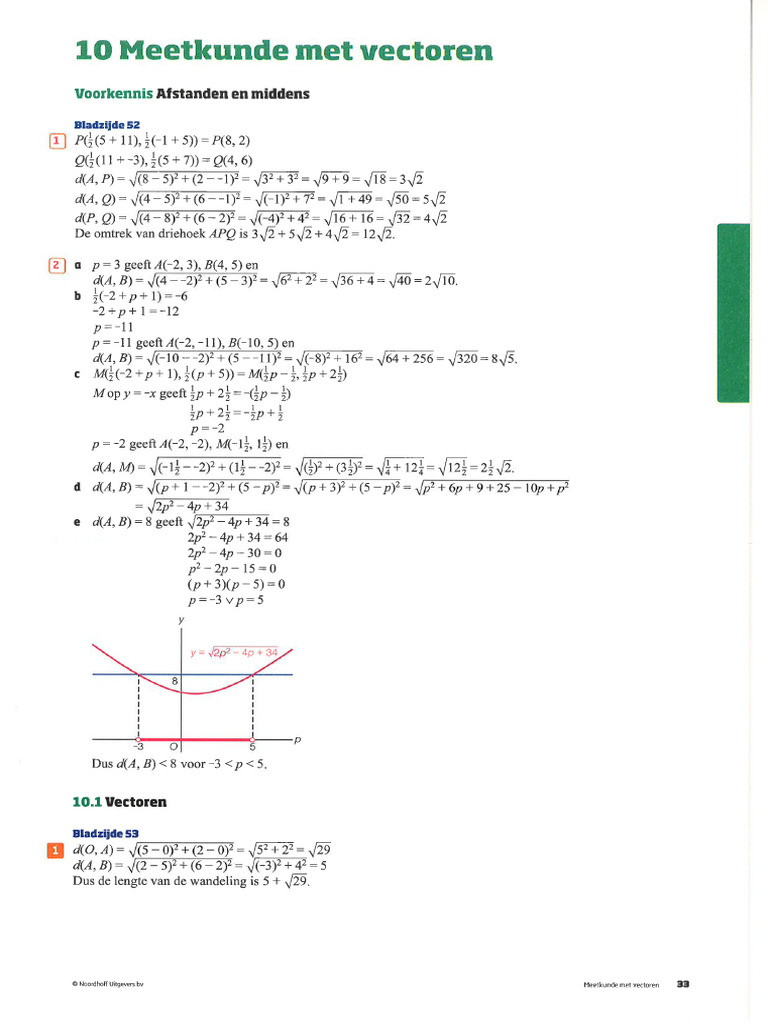 10 Meetkunde met vectoren
Voorkennis Afstanden en middens
Bladzijde 52
1 P(½(5 + 11), ½(-1 + 5)) = P(8, 2)
Q(½(11 + -3), ½(5 + 7)) = Q(4, 6)
d(A, P) = √((8 − 5)² + (2 − -1)²) = √(3² + 3²) = √(9 + 9) = √18 = 3√2
d(A, Q) = √((4 − 5)² + (6 − -1)²) = √((-1)² + 7²) = √(1 + 49) = √50 = 5√2
d(P, Q) = √((4 − 8)² + (6 − 2)²) = √((-4)² + 4²) = √(16 + 16) = √32 = 4√2
De omtrek van driehoek APQ is 3√2 + 5√2 + 4√2 = 12√2.
2 a p = 3 geeft A(-2, 3), B(4, 5) en
d(A, B) = √((4 − -2)² + (5 − 3)²) = √(6² + 2²) = √(36 + 4) = √40 = 2√10.
b ½(-2 + p + 1) = -6
-2 + p + 1 = -12
p = -11
p = -11 geeft A(-2, -11), B(-10, 5) en
d(A, B) = √((-10 − -2)² + (5 − -11)²) = √((-8)² + 16²) = √(64 + 256) = √320 = 8√5.
c M(½(-2 + p + 1), ½(p + 5)) = M(½p − ½, ½p + 2½)
M op y = -x geeft ½p + 2½ = -(½p − ½)
½p + 2½ = -½p + ½
p = -2
p = -2 geeft A(-2, -2), M(-1½, 1½) en
d(A, M) = √((-1½ − -2)² + (1½ − -2)²) = √((½)² + (3½)²) = √(¼ + 12¼) = √(12½) = 2½√2.
d d(A, B) = √((p + 1 − -2)² + (5 − p)²) = √((p + 3)² + (5 − p)²) = √(p² + 6p + 9 + 25 − 10p + p²)
= √(2p² − 4p + 34)
e d(A, B) = 8 geeft √(2p² − 4p + 34) = 8
2p² − 4p + 34 = 64
2p² − 4p − 30 = 0
p² − 2p − 15 = 0
(p + 3)(p − 5) = 0
p = -3 ∨ p = 5
y
y = √(2p² − 4p + 34)
8
p
-3 O 5
Dus d(A, B) < 8 voor -3 < p < 5.
10.1 Vectoren
Bladzijde 53
1 d(O, A) = √((5 − 0)² + (2 − 0)²) = √(5² + 2²) = √29
d(A, B) = √((2 − 5)² + (6 − 2)²) = √((-3)² + 4²) = 5
Dus de lengte van de wandeling is 5 + √29.
© Noordhoff Uitgevers bv Meetkunde met vectoren 33